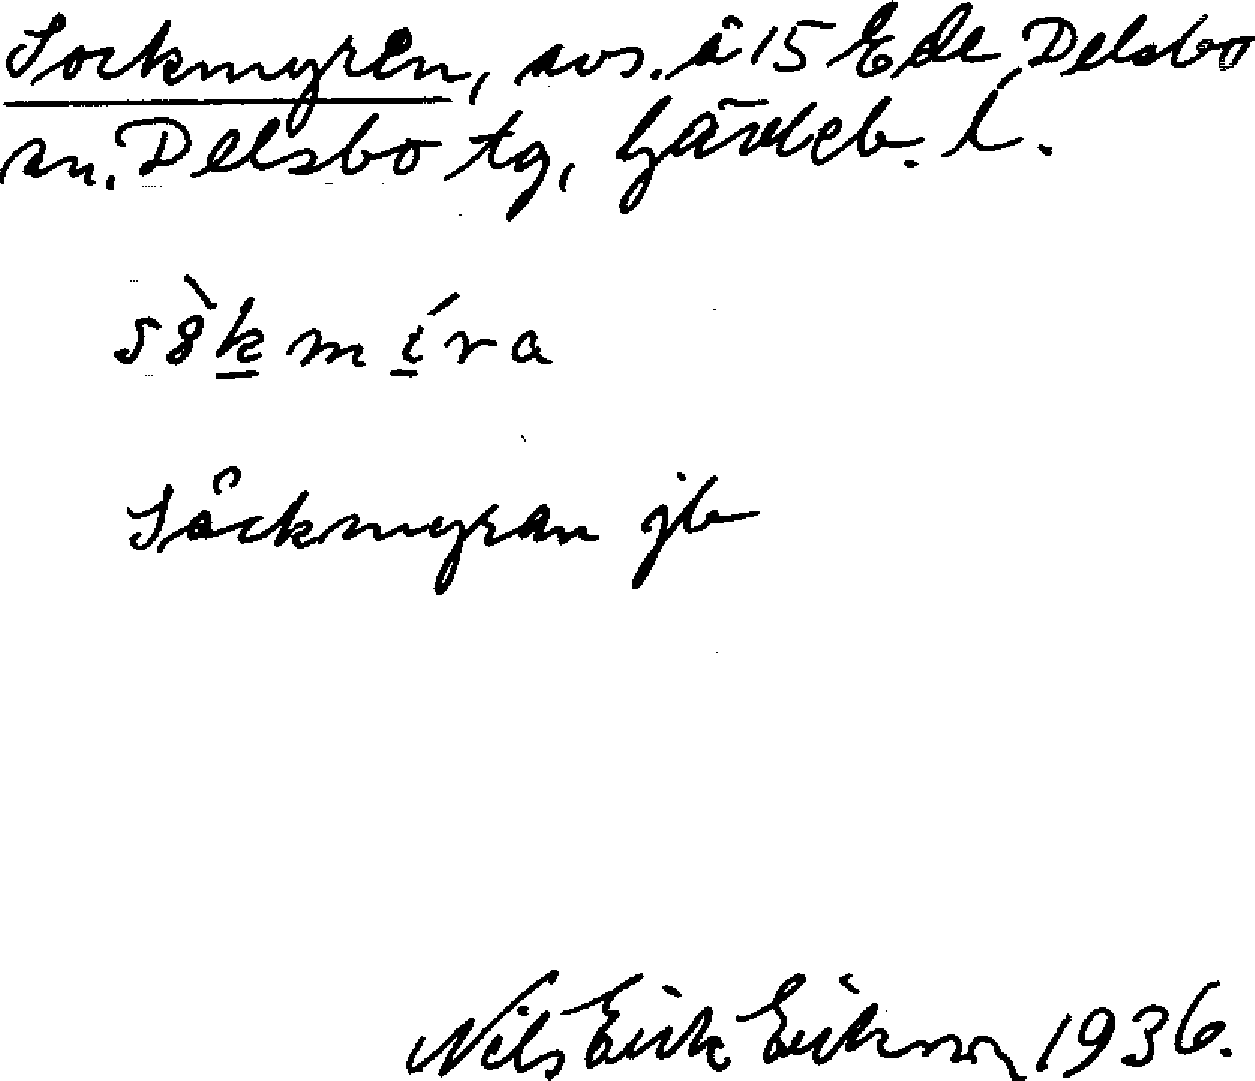 Sockmyren, avs. å 15 Ede, Delsbo
sn. Delsbo tg, Gävleb. l.
sòkmíra
Såckmyran jb
Nils Erik Eriksson 1936.